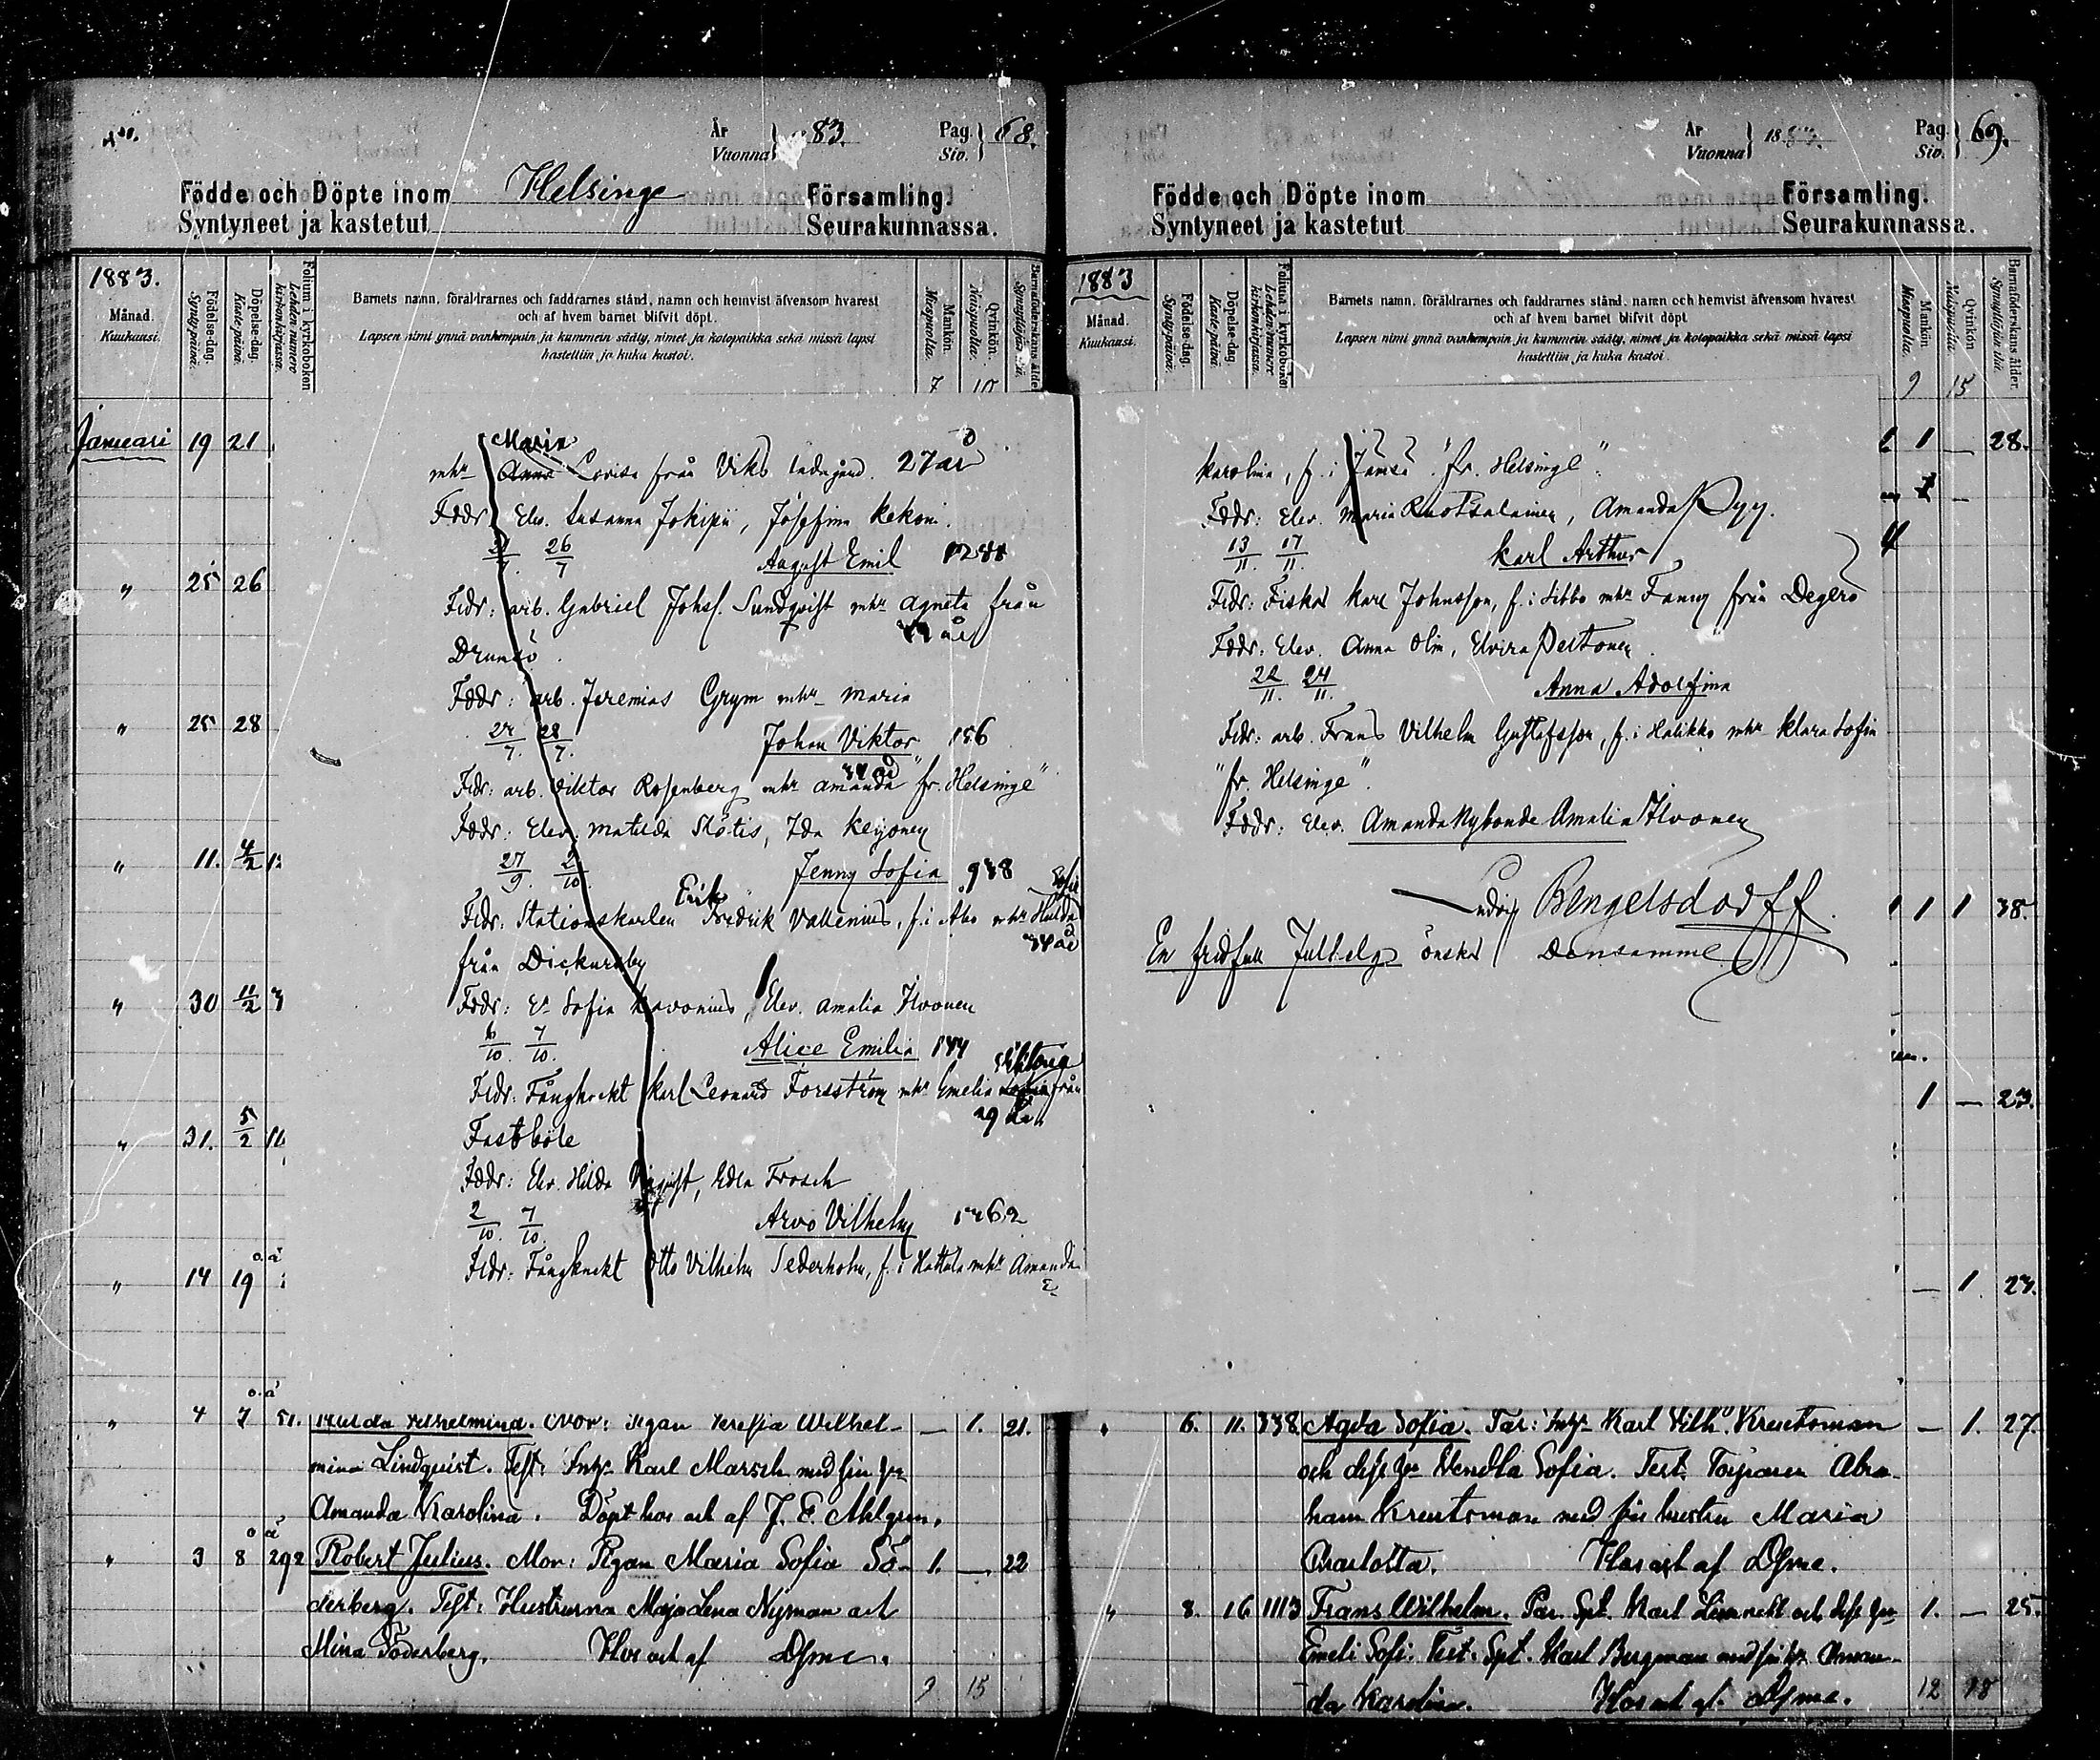 År 1883. Pag. 68.
Vuonna Siv.
Födde och Döpte inom Helsinge Församling.
Syntyneet ja kastetut Seurakunnassa.
1883.
Månad.
Kuukausi.
Födelse-dag.
Syntypäivä.
Döpelse-dag.
Kastepäivä.
Folium i kyrkoboken
Lehden numero kirkonkirjassa.
Barnets namn, föräldrarnes och faddrarnes stånd, namn och hemvist äfvensom hvarest
och af hvem barnet blifvit döpt.
Lapsen nimi ynnä vanhempain ja kummein sääty, nimet ja kotopaikka sekä missä lapsi
kastettiin ja kuka kastoi.
Mankön.
Miespuolia.
Qvinkön.
Naispuolia.
7 10
Januari 19 21
Maria
mhr Anna Lovisa från Viks ladugård. 27 år
Fddr: Elev. Susanna Jokipii, Josefina Kekoni.
26/7 August Emil
" 25 26
Fldr: arb. Gabriel Johs. Sundqvist mhr Agneta från
Drumsö.
Fddr: arb. Jeremias Grym mhr Maria
" 25 28
28/7. Johan Viktor 156
Fldr: arb. Viktor Rosenberg mhr Amanda "fr. Helsinge"
Fddr: Elev. Matilda Slötis, Ida Keijonen
" 11. 4/2
27/9. 2/10. Jenny Sofia 938
Erik
Fldr: Stationskarlen Fredrik Vallenius, f. i Åbo mhr Hulda
Sofia
34 år
från Dickursby
" 30 11/2
Fddr: Sofia Savonius, Elev. Amalia Ilvonen
6/10. 7/10. Alice Emilia 144
Viktoria
Fldr: Fångknekt Karl Leonard Forsström mhr Emelia från
29 år
" 31. 5/2
Fastböle
Fddr: Elev. Hilda Nyqvist, Edla Frosch
2/10. 7/10. Arvo Vilhelm 1462
" 14 19
Fldr: Fångknekt Otto Vilhelm Sederholm, f. i Hattula mhr Amanda
E.
" 4 7 51. Hulda Vilhelmina. Mor: Pigan Teresia Wilhel- — 1. 21.
mina Lindquist. Test: Karl Marsch med sin
Amanda Karolina. Döpt hos och af J. E. Ahlgren.
" 3 8 292 Robert Julius. Mor: Pigan Maria Sofia Sö- 1. — 22
derberg. Test: Hustrurna Maja Lena Nyman och
Mina Söderberg. Hos och af Dsme.
9 15
År 1883. Pag. 69.
Vuonna Siv.
Födde och Döpte inom Församling.
Syntyneet ja kastetut Seurakunnassa.
1883
Månad.
Kuukausi.
Födelse-dag.
Syntypäivä.
Döpelse-dag.
Kastepäivä.
Folium i kyrkoboken
Lehden numero kirkonkirjassa.
Barnets namn, föräldrarnes och faddrarnes stånd, namn och hemvist äfvensom hvarest
och af hvem barnet blifvit döpt.
Lapsen nimi ynnä vanhempain ja kummein sääty, nimet ja kotopaikka sekä missä lapsi
kastettiin ja kuka kastoi.
Mankön.
Miespuolia.
Qvinkön.
Naispuolia.
Barnaföderskans ålder.
Synnyttäjän ikä.
9 15
Karolina, f. i Jämsä "fr. Helsinge". 1 — 28.
Fddr: Elev. Maria Ruotsalainen, Amanda Pyy.
13/11. 17/11. Karl Arthur
Fldr: Fiskar Karl Johnsson, f. i Sibbo mhr Fanny från Degerö
Fddr: Elev. Anna Olin, Elvira Pertonen
22/11. 24/11. Anna Adolfina
Fldr: arb. Frans Vilhelm Gustafsson, f. i Halikko mhr Klara Sofia
"fr. Helsinge".
Fddr: Elev. Amanda Nybonde Amalia Ilvonen
Ludvig Bengelsdorff. 1 1 38.
En fridfull Julhelg önskar Densamme
1 — 23.
— 1. 27.
" 6. 11. 338. Agda Sofia. Far: Karl Vilh. Kreutsman — 1. 27.
och dess Vendla Sofia. Test. Torparen Abra-
ham Kreutsman med sin hustru Maria
Charlotta. Hos och af Dsme.
" 8. 16 1113 Frans Wilhelm. Far. Spt. Karl Linnell och dess 1. — 25.
Emeli Sofi. Test. Spt. Karl Bergman med sin Aman-
da Karolina. Hos och af Dsme. 12 18